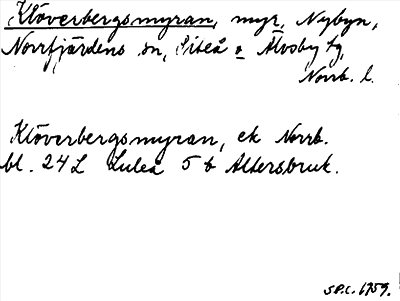 Klöverbergsmyran, myr, Nybyn,
Norrfjärdens sn, Piteå o Älvsby tg,
Norrb. l.
Klöverbergsmyran, ek Norrb.
bl. 24L Luleå 5 b Altersbruk.
S.P.C. 1959.